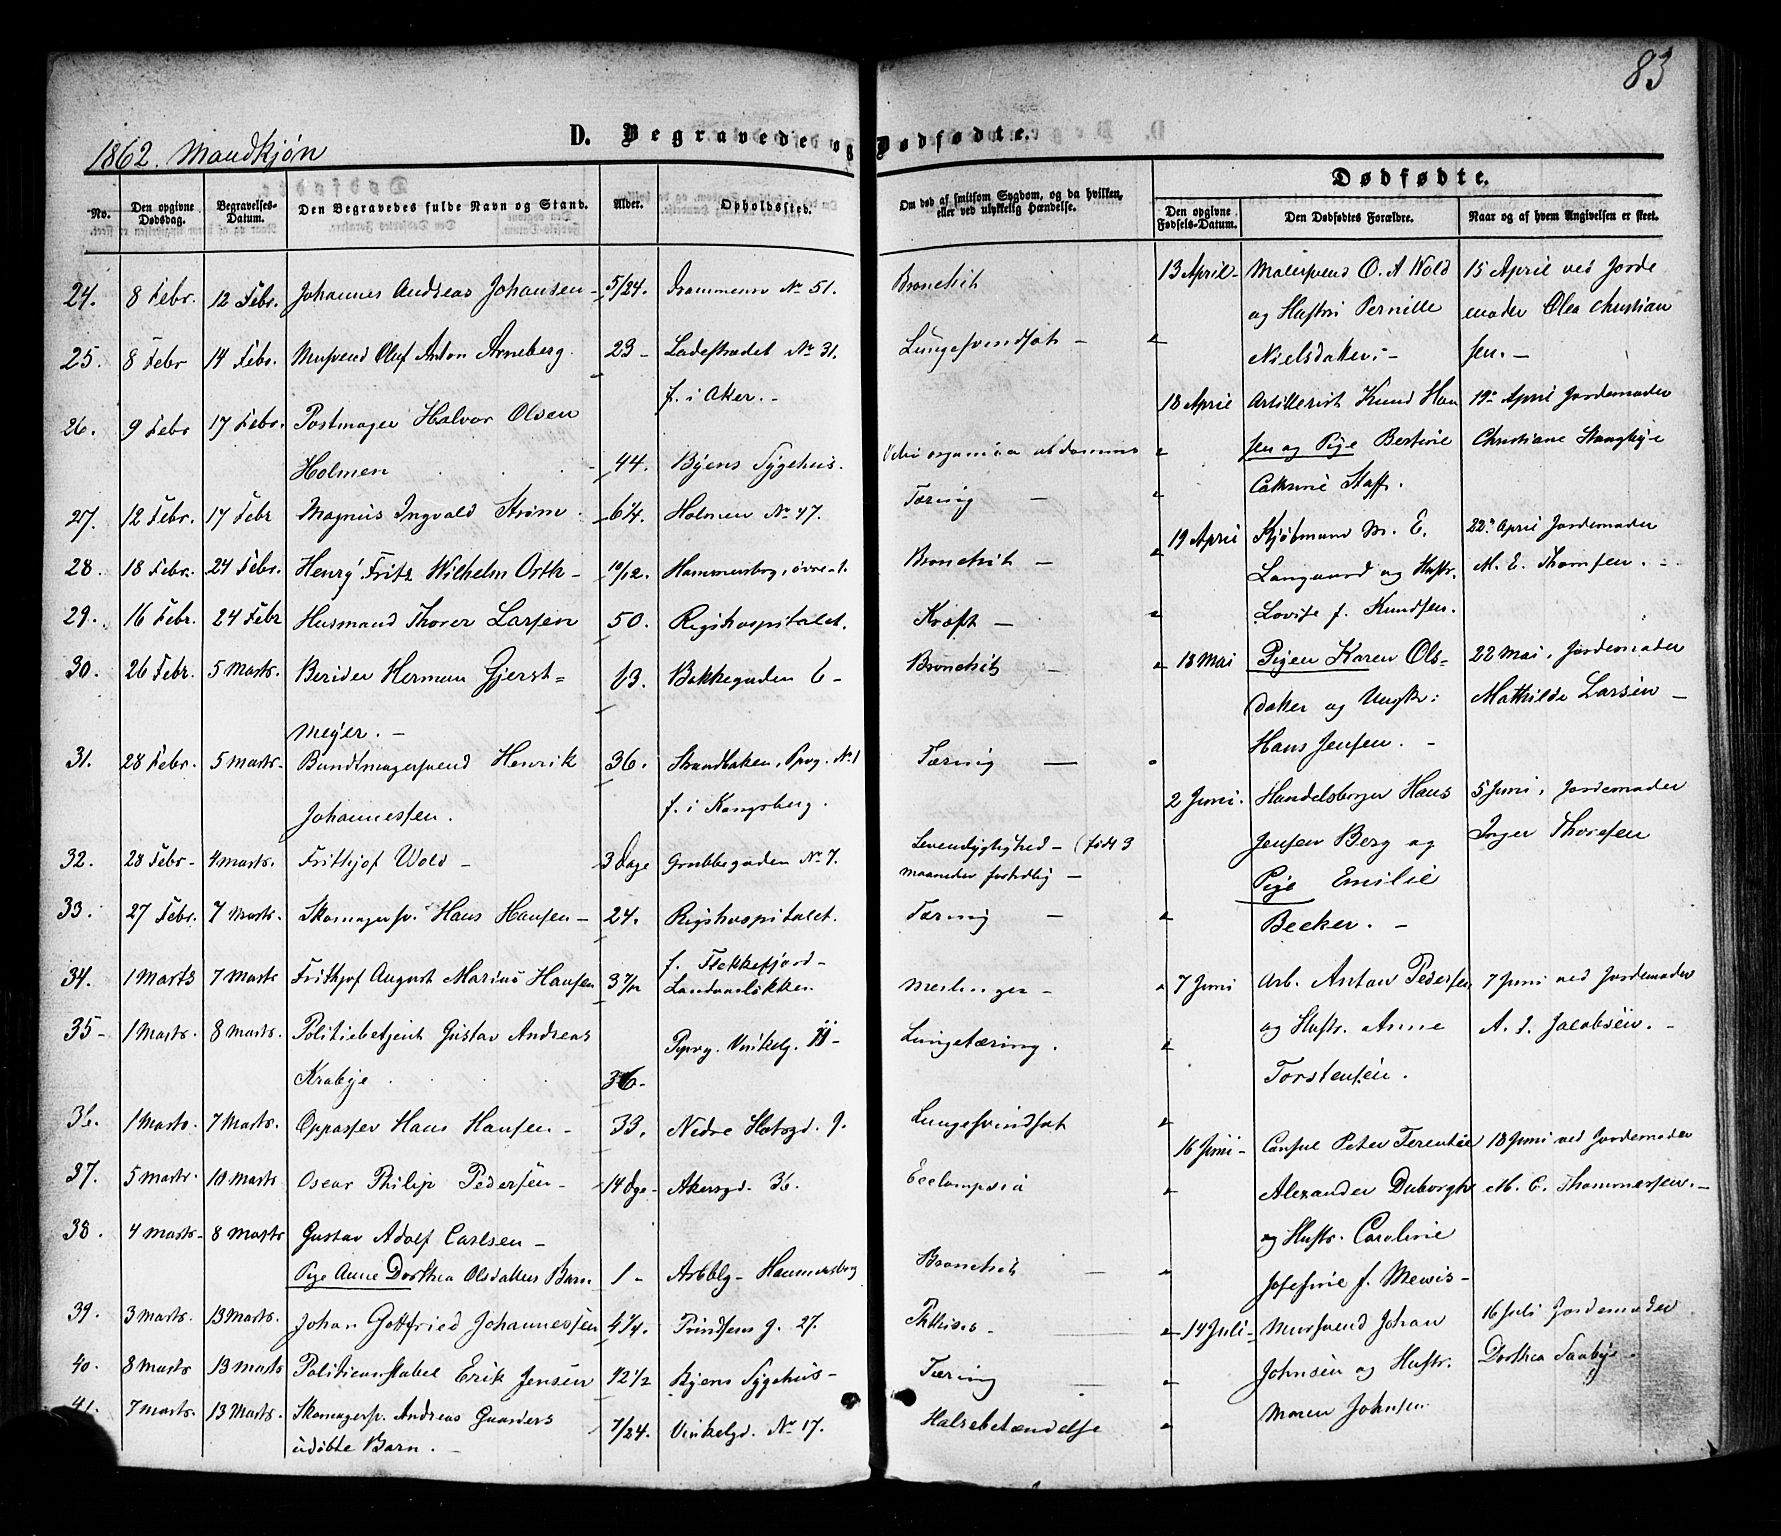 83
1862. Mandkjøn
D. Begravede og Dødfødte.
Dødfødte.
No.
Den opgivne Dødsdag.
Begravelses-Datum.
Den Begravedes fulde Navn og Stand.
Alder.
Opholdssted.
Om død af smitsom Sygdom, og da hvilken, eller ved ulykkelig Hændelse.
Den opgivne Fødsels-Datum.
Den Dødfødtes Forældre.
Naar og af hvem Angivelsen er skeet.
24. 8 Febr. 12 Febr. Johannes Andreas Johansen - 5/24. Drammensv No 51. Bronchit
25. 8 Febr 14 Febr. Mursvend Oluf Anton Arneberg. 23 - Ladestrædet No 31. Lungesvindsot -
f. i Aker. -
26. 9 Febr 17 Febr. Postmager Halvor Olsen
Holmen 44. Byens Sygehus. organica abdomins
27. 12 Febr. 17 Febr Magnus Ingvald Strøm. 6 1/4. Holmen No 47. Tæring -
28. 18 Febr. 24 Febr. Henry Fritz Wilhelm Orth - 10/12. Hammersbog, övre -1. Bronchit -
29. 16 Febr. 24 Febr Husmand Thorer Larsen 50. Rigshospitalet. Kræft -
30. 26 Febr. 5 Marts. Berider Herman Gjerst=
meyer. - 63. Bakkegaden 6 - Bronchit -
31. 28 Febr. 5 Marts - Buntmagersvend Henrik 36. Strandbakken, Ppvg. No 1 Tæring -
Johannessen. f. i Kongsberg.
32. 28 Febr - 4 Marts. Frithjof Wold - 3 Dage Grubbegaden No 7. Levendygtighed - (født 3
maaneder fortidlig -
33. 27 Febr. 7 Marts. Skomagersv. Hans Hansen - 24. Rigshospitalet. Tæring -
f. Flekkefjord -
34. 1 Marts 7 Marts Frithjof August Marius Hansen 3 7/12 Landvaslökken Meslinger -
35 - 1 Marts. 8 Marts. Politiebetjent Gustav Andreas Ppvg. Vinkelg. 11 - Lungetæring.
Krabye 36 -
36. 1 Marts. 7 Marts. Oppasser Hans Hansen - 33. Nedre Slotsgd. 9. Lungesvindsot
37. 5 Marts. 10 Marts. Oscar Philip Pedersen - 14 Dge - Akersgd. 36. Eclampsia
38. 4 Marts - 8 Marts Gustav Adolf Carlsen -
Pige Anne Dorthea Olsdatters Barn 1 - Arbblg - Hammersbog Bronchit -
39. 3 Marts. 13 Marts. Johan Gotfried Johannessen 4 1/4. Prindsens g. 27. Phthisis -
40. 8 Marts 13 Marts Politiconstabel Erik Jensen 42 1/2 Byens Sygehus - Tæring -
41. 7 Marts. 13 Marts. Skomagersv. Andreas Gaarders 7/24. Vinkelgd. No 17. Halsebetændelse
udøbte Barn. -
13 April - Malersvend O. A Wold 15 April ved Jorde
og Hustri Pernille moder Olea Christian
Nielsdatter; - sen. -
18 April Artillerist Knud Han 19de April Jordemoder
sen og Pige Bertine Christiane Stangbye
Cathrine Staff.
19 April Kjøbmand M. E. 22de April Jordemoder
Langaard og Hustr. M. E. Thomsen. -
Lovise f. Knudsen.
18 Mai Pigen Karen Ols- 22 Mai, Jordemoder
datter og Ungkr: Mathilde Larsen -
Hans Jensen. -
2 Juni. Handelsborger Hans 5 Juni, Jordemoder
Jensen Berg og Inger Thoresen
Pige Emilie
Becker. -
7 Juni Arb. Anton Pedersen 7 Juni ved Jordemoder
og Hustr. Anne A. J. Jacobsen. -
Torstensen.
16 Juni - Consul Peter Terentie 18 Juni ved Jordemoder
Alexander Duborgh M. C. Thommesen. -
og Hustr. Caroline
Josefine f. Mewis -
14 Juli - Mursvend Johan 16 Juli Jordemoder
Johnsen og Hustr. Dorthea Saabye.
Maren Johnsen